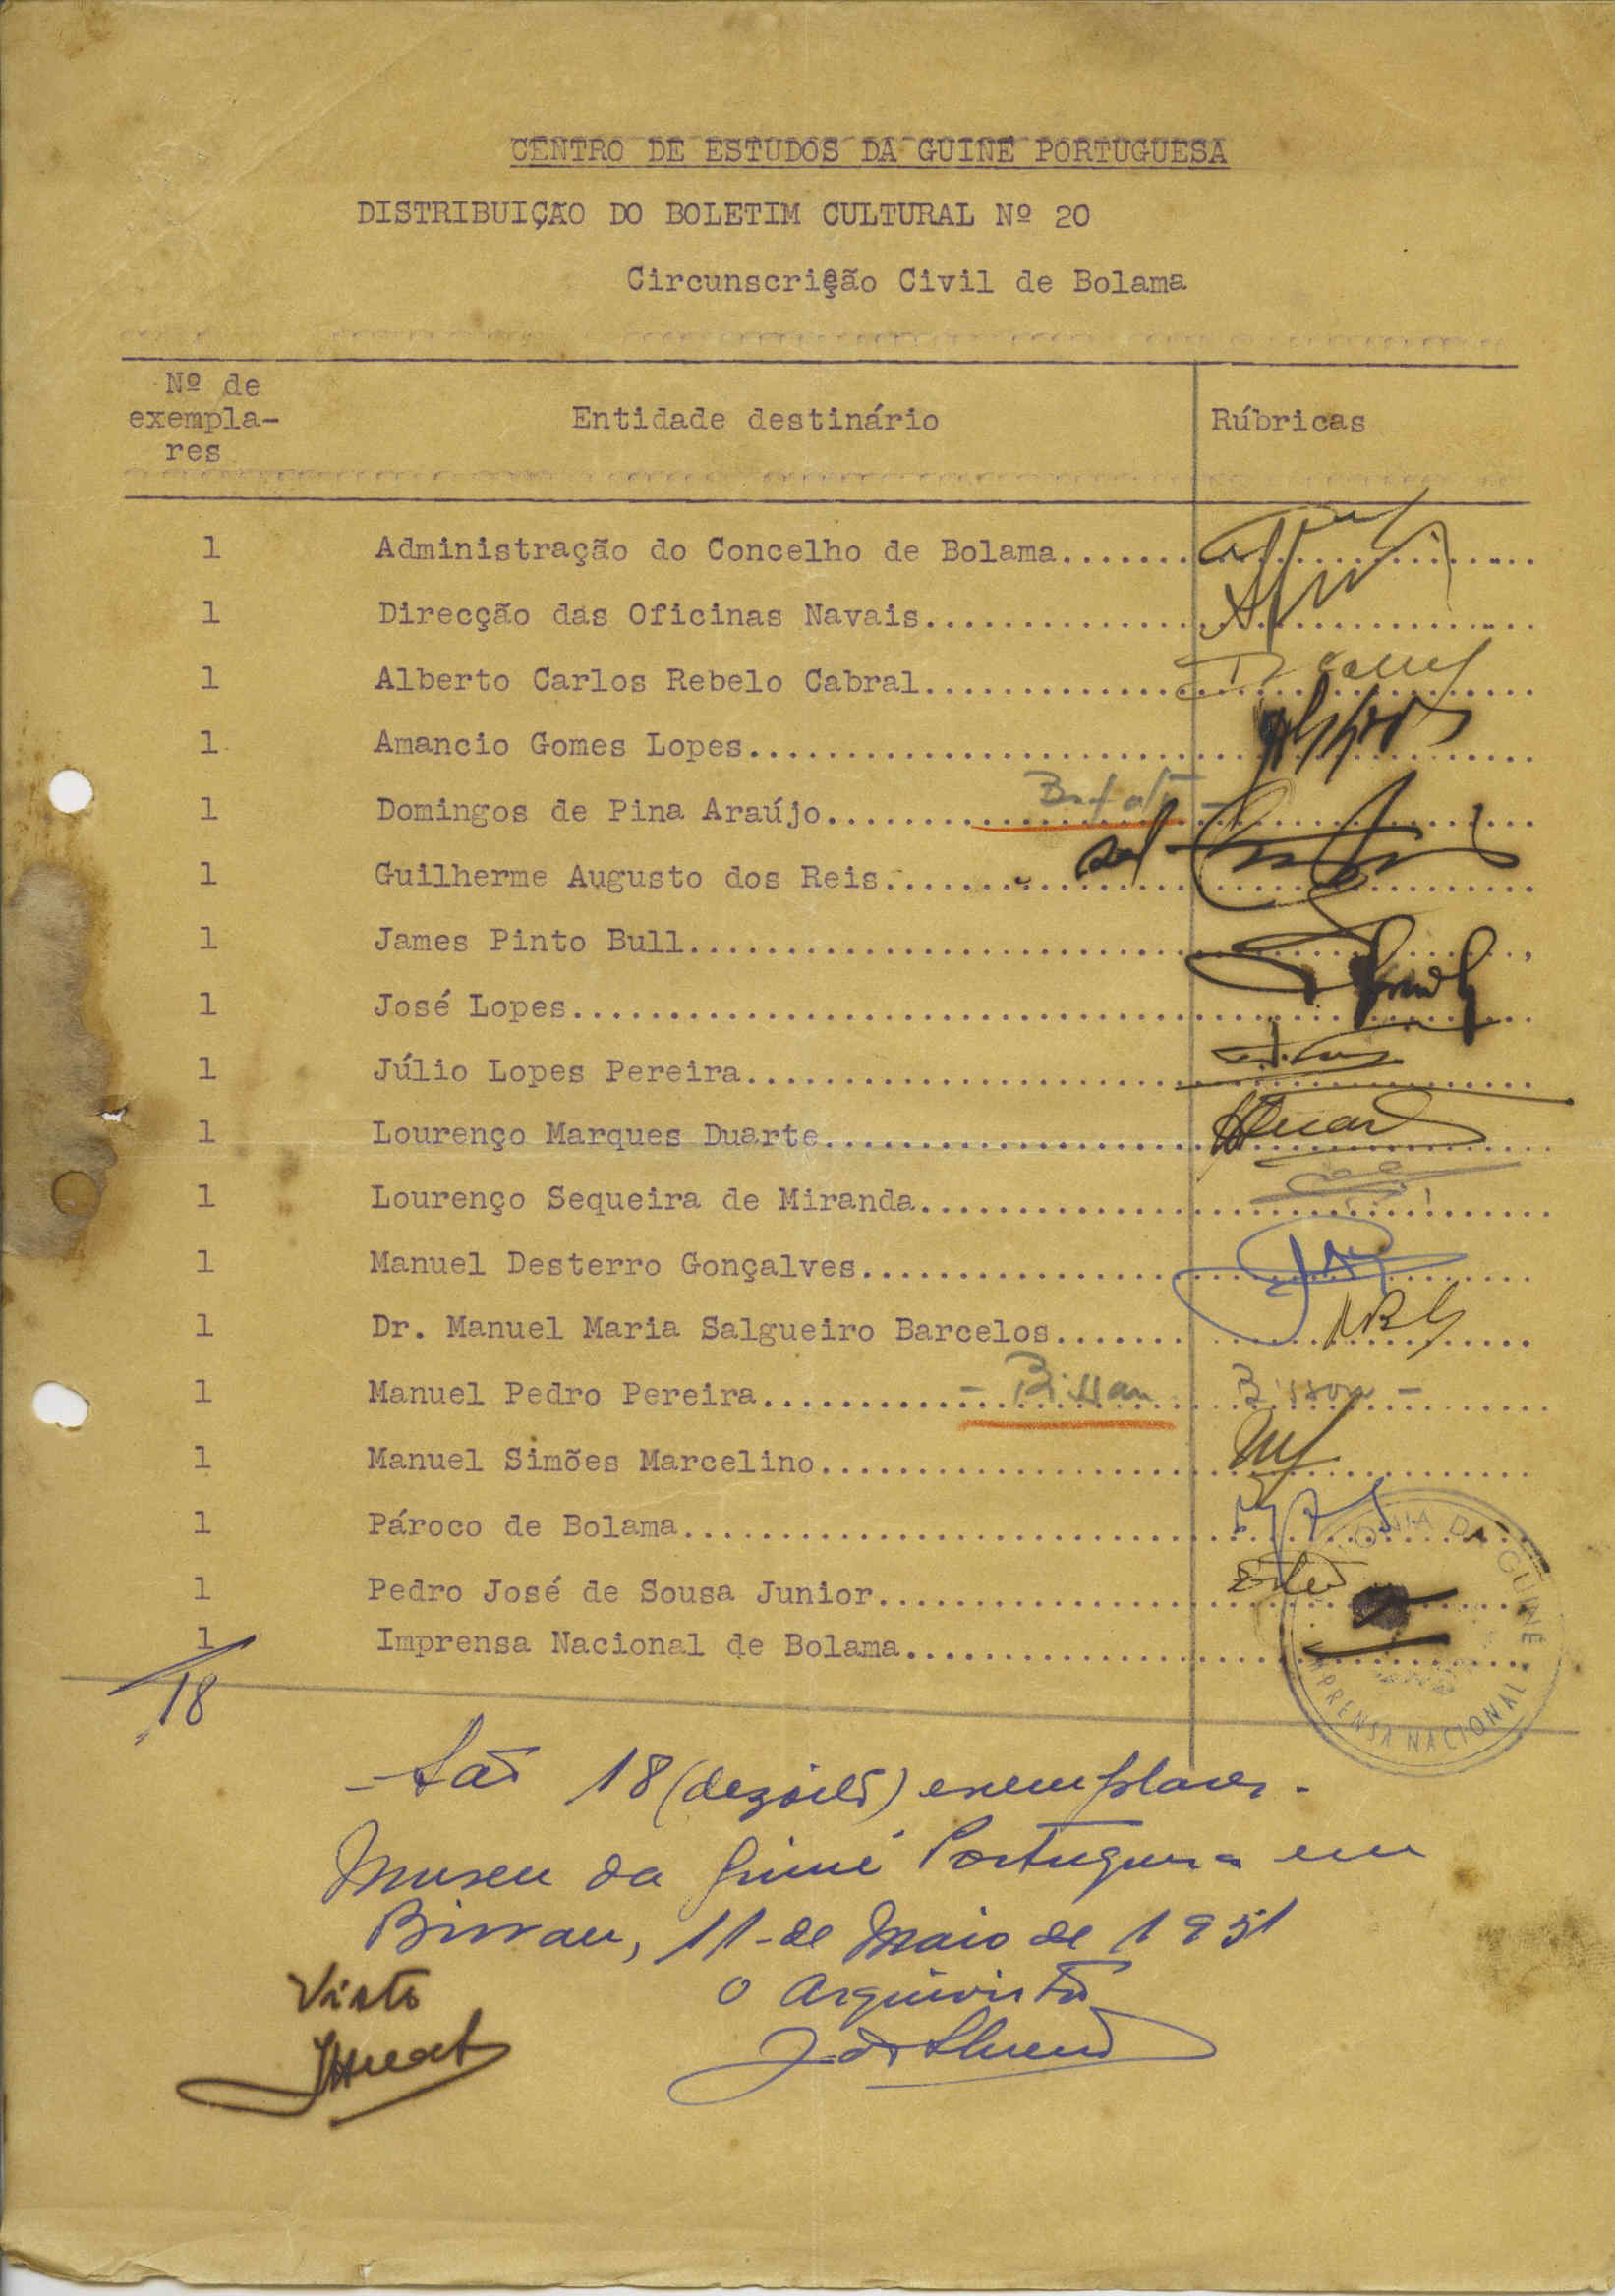 CENTRO DE ESTUDOS DA GUINÉ PORTUGUESA
DISTRIBUIÇÃO DO BOLETIM CULTURAL Nº 20
Circunscrição Civil de Bolama
Nº de
exempla-
res
Entidade destinário
Rúbricas
1 Administração do Concelho de Bolama
1 Direcção das Oficinas Navais
1 Alberto Carlos Rebelo Cabral
1 Amancio Gomes Lopes
1 Domingos de Pina Araújo
1 Guilherme Augusto dos Reis
1 James Pinto Bull
1 José Lopes
1 Júlio Lopes Pereira
1 Lourenço Marques Duarte
1 Lourenço Sequeira de Miranda
1 Manuel Desterro Gonçalves
1 Dr. Manuel Maria Salgueiro Barcelos
1 Manuel Pedro Pereira - Bissau Bissau -
1 Manuel Simões Marcelino
1 Pároco de Bolama
1 Pedro José de Sousa Junior
1 Imprensa Nacional de Bolama
COLONIA DA GUINÉ
IMPRENSA NACIONAL
18
- São 18 (dezóito) exemplares.
Museu da Guiné Portuguesa em
Bissau, 11 de Maio de 1951
Visto
O Arquivista